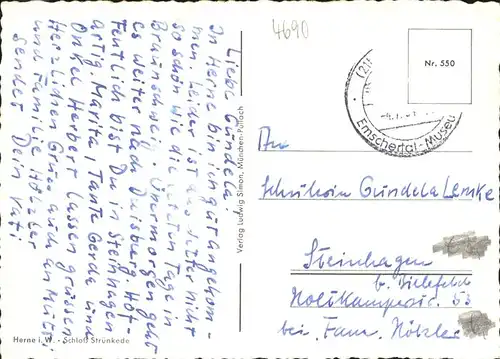 4690
Nr. 550
Emschertal-Museum
Liebe Gundela!
In Herne bin ich gut angekom-
men. Leider ist das Wetter nicht
so schön wie die letzten Tage in
Braunschweig. Übermorgen geht
es weiter nach Duisburg. Hof-
fentlich bist Du in Steinhagen
artig. Marita, Tante Gerda und
Onkel Herbert lassen grüssen.
Herzlichen Gruss auch an Mutti
und Familie Hölzler
sendet Dein Vati
Verlag Ludwig Simon, München-Pullach
An
Schülerin Gundela Lemke
Steinhagen
b. Bielefeld
Holtkampstr. 53
bei Fam. Hölzler
Herne i. W. - Schloß Strünkede